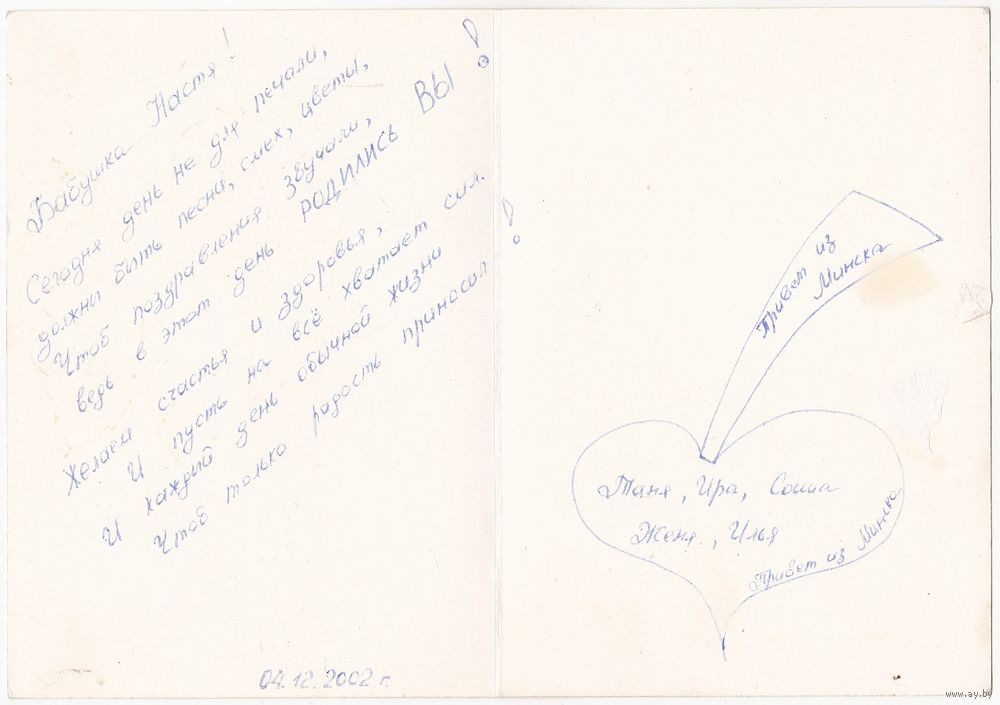 Бабушка Настя!
Сегодня день не для печали,
должны быть песни, смех, цветы,
Чтоб поздравления звучали,
ведь в этот день РОДИЛИСЬ ВЫ!
Желаем счастья и здоровья,!
И пусть на всё хватает сил.
И каждый день обычной жизни
Чтоб только радость приносил
04.12.2002 г.
Привет из
Минска
Таня, Ира, Соша
Женя., Илья
Привет из Минска
www.ay.by